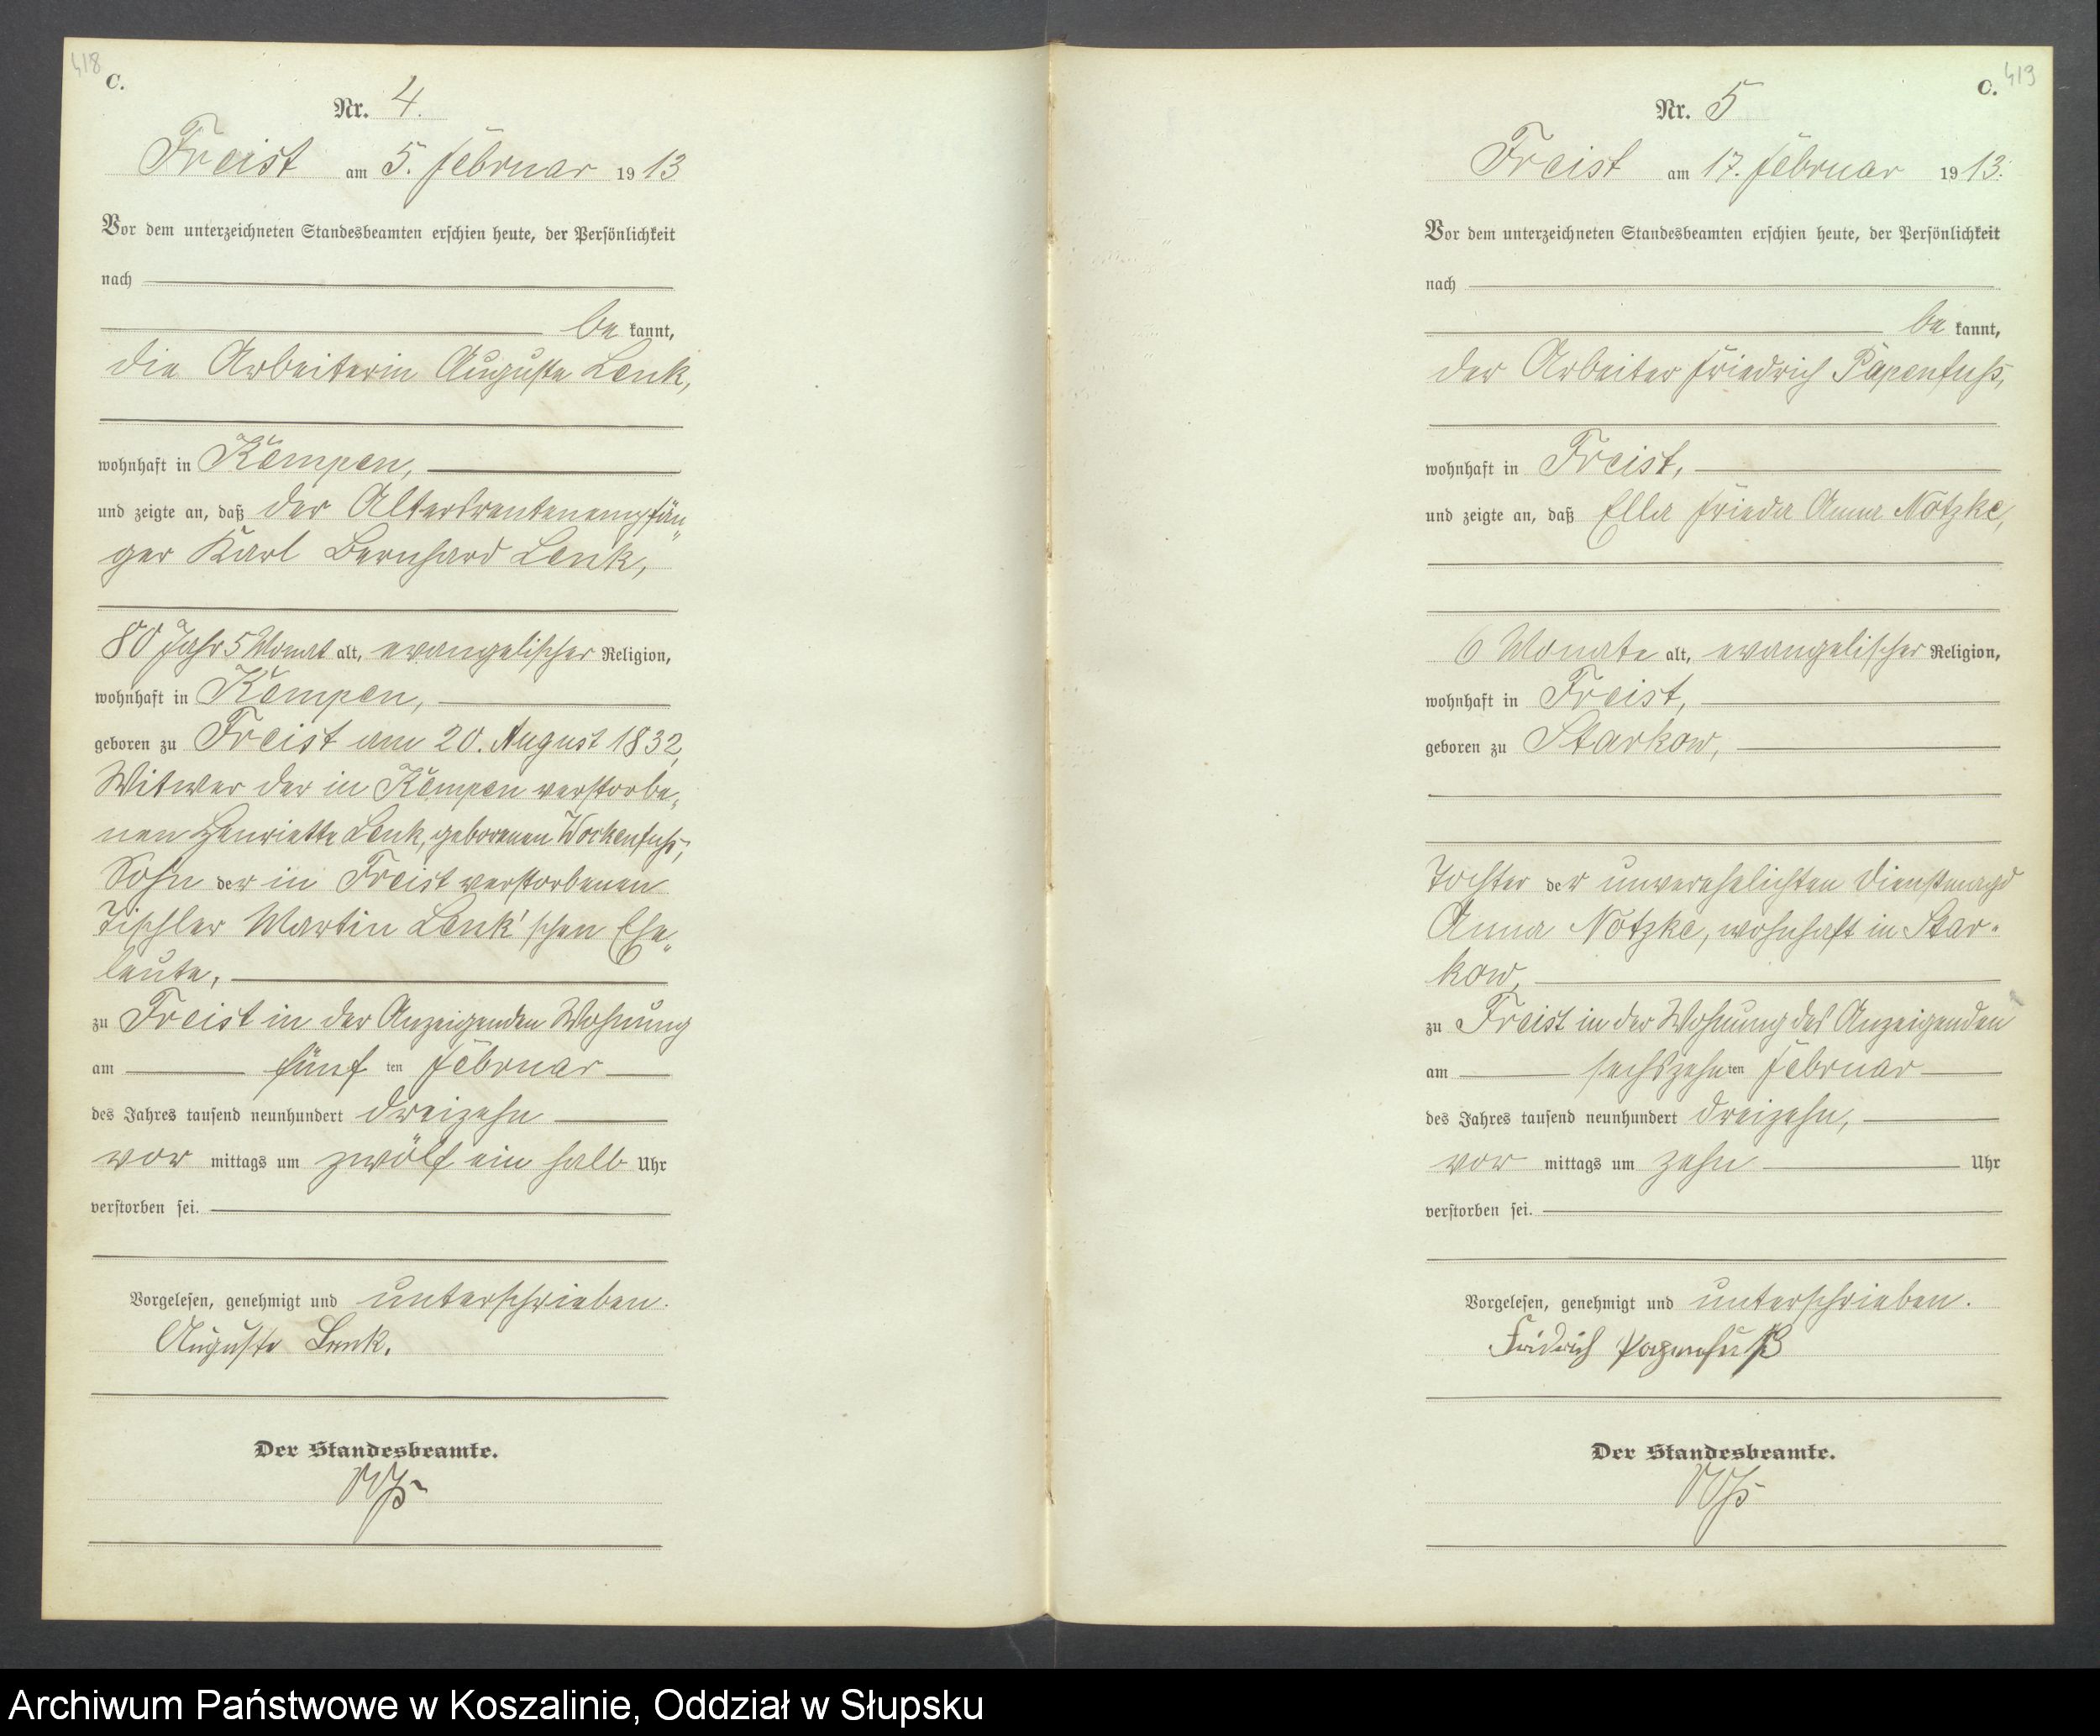 418
C.
Nr. 4.
Freist am 5. Februar 1913
Vor dem unterzeichneten Standesbeamten erschien heute, der Persönlichkeit
nach
be kannt,
die Arbeiterin Auguste Lenk,
wohnhaft in Kempen,
und zeigte an, daß der Altersrentenempfän„
ger Karl Bernhard Lenk,
80 Jahr 5 Monat alt, evangelischer Religion,
wohnhaft in Kempen,
geboren zu Freist am 20. August 1832,
Witwer der in Kempen verstorbe„
nen Henriette Lenk, geborenen Wockenfuß,
Sohn der in Freist verstorbenen
Tischler Martin Lenk'schen Ehe„
leute,
zu Freist in der Anzeigenden Wohnung
am fünf ten Februar
des Jahres tausend neunhundert dreizehn
vor mittags um zwölf ein halb Uhr
verstorben sei.
Vorgelesen, genehmigt und unterschrieben.
Auguste Lenk.
Der Standesbeamte.
C. 419
Nr. 5
Freist am 17. Februar 1913.
Vor dem unterzeichneten Standesbeamten erschien heute, der Persönlichkeit
nach
be kannt,
der Arbeiter Friedrich Papenfuss,
wohnhaft in Freist,
und zeigte an, daß Ella Frieda Anna Nötzke,
6 Monate alt, evangelischer Religion,
wohnhaft in Freist,
geboren zu Starkow,
Tochter der unverehelichten Dienstmagd
Anna Nötzke, wohnhaft in Star„
kow,
zu Freist in der Wohnung des Anzeigenden
am sechszehn ten Februar
des Jahres tausend neunhundert dreizehn,
vor mittags um zehn Uhr
verstorben sei.
Vorgelesen, genehmigt und unterschrieben.
Fridrich Papenfuß
Der Standesbeamte.
Archiwum Państwowe w Koszalinie, Oddział w Słupsku